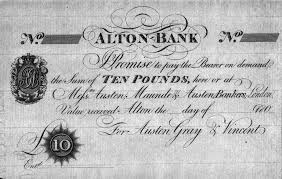 No ALTON-BANK No
I Promise to pay the Bearer on demand
the Sum of TEN POUNDS, here or at
Messrs Austen, Maunde & Austen, Bankers, London
Value received Alton the day of 180
For Austen Gray & Vincent
£ 10
Entd